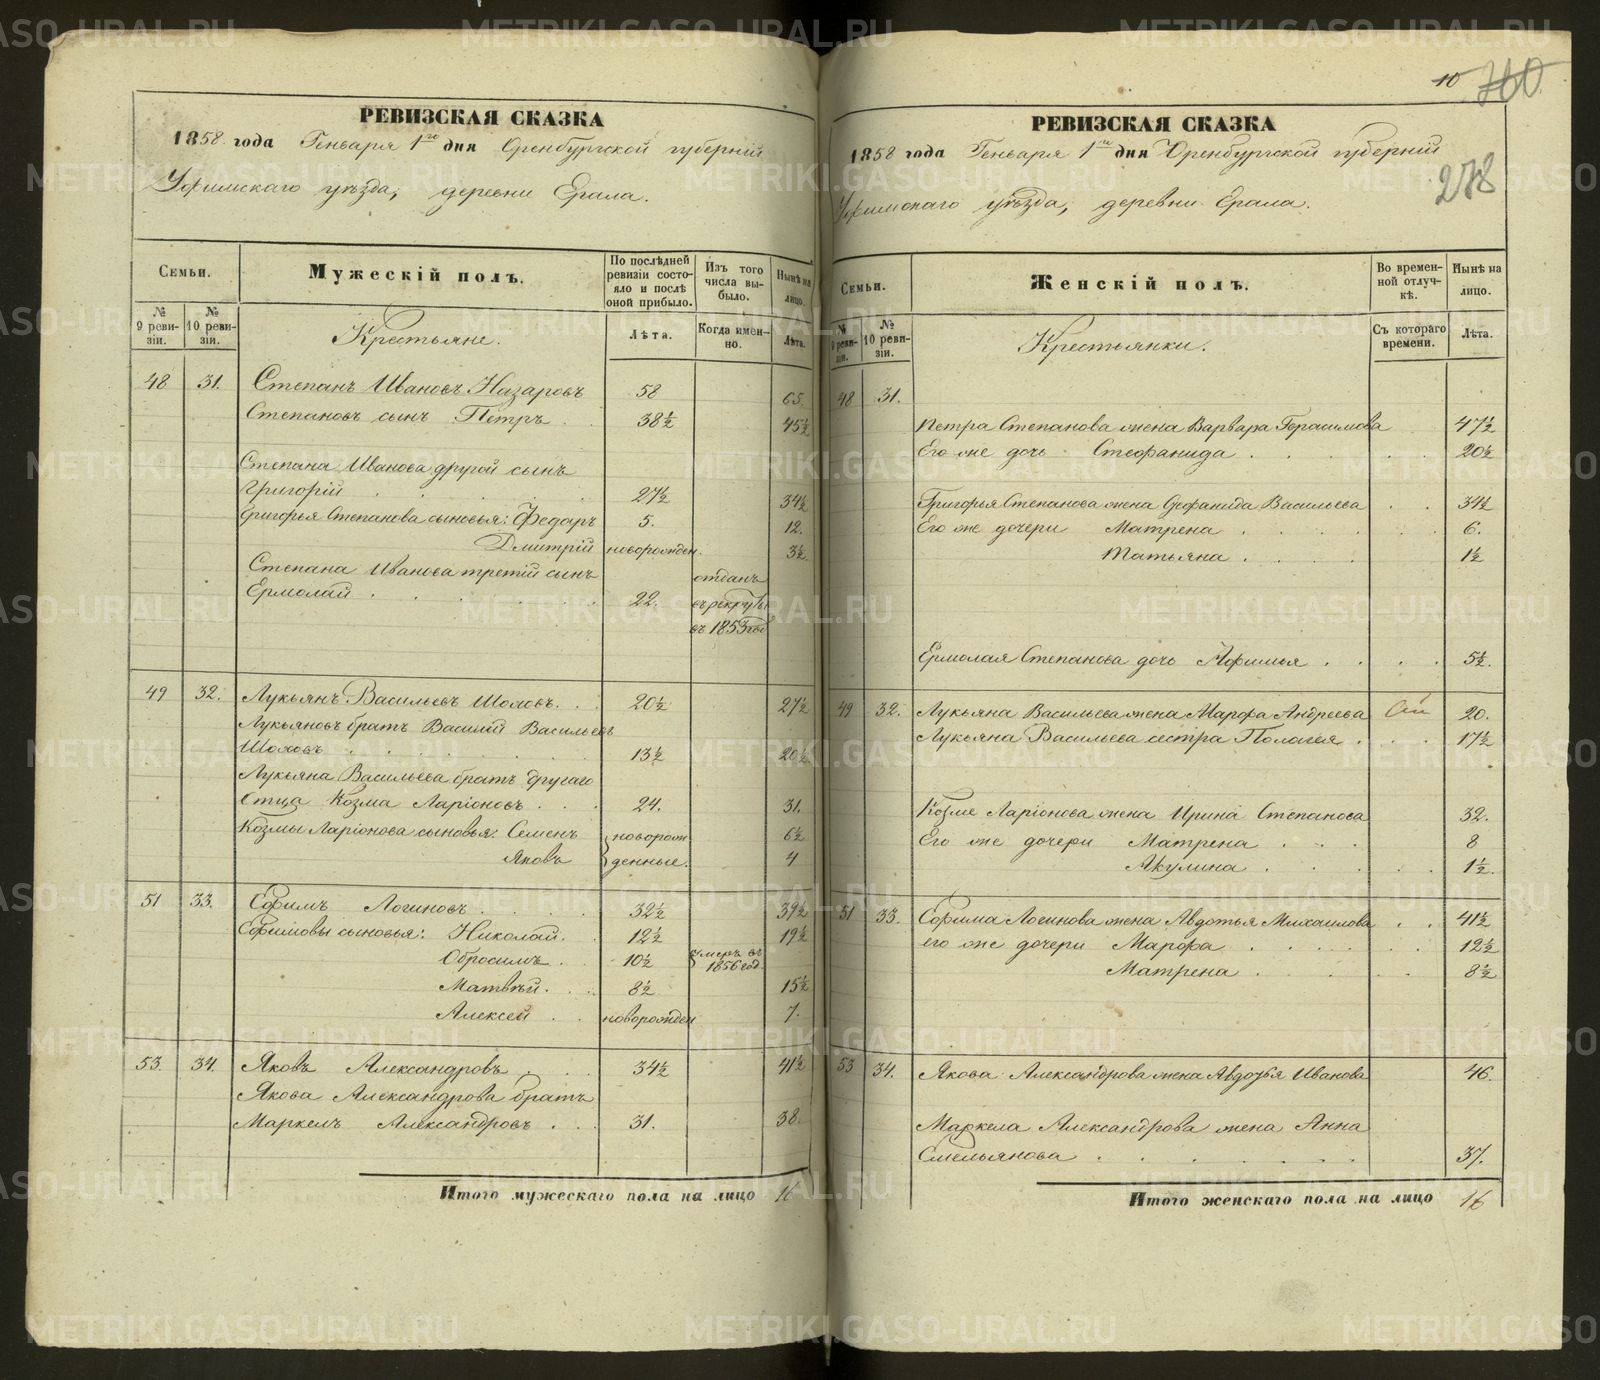 РЕВИЗСКАЯ СКАЗКА
1858 года Генваря 1го дня Оренбургской губерніи
Уфимскаго уѣзда, деревни Ерала.
Семьи.
Мужескій полъ.
По послѣдней ревизіи состояло и послѣ оной прибыло.
Изъ того числа выбыло.
Нынѣ на лицо.
№ 9 ревизіи.
№ 10 ревизіи.
Крестьяне.
Лѣта.
Когда именно.
Лѣта.
48 31. Степанъ Ивановъ Назаровъ 58 65.
Степановъ сынъ Петръ 38½ 45½
Степана Иванова другой сынъ
Григорій 27½ 34½
Григорья Степанова сыновья: Федоръ 5. 12.
Дмитрій новорожден. 3½
Степана Иванова третій сынъ отданъ
Ермолай 22. въ рекруты
въ 1853 год
49 32. Лукьянъ Васильевъ Шоловъ. 20½ 27½
Лукьяновъ братъ Василій Васильевъ
Шоловъ 13½ 20½
Лукьяна Васильева братъ другаго
отца Козма Ларіоновъ 24. 31.
Козмы Ларіонова сыновья: Семенъ новорож- 6½
Яковъ денные. 4
51 33. Ефимъ Логиновъ 32½ 39½
Ефимовы сыновья: Николай 12½ 19½
Обросимъ 10½ умеръ въ 1856 год.
Матвѣй. 8½ 15½
Алексей новорожден 7.
53. 34. Яковъ Александровъ 34½ 41½
Якова Александрова братъ
Маркелъ Александровъ 31. 38.
Итого мужескаго пола на лицо 16
10 700
РЕВИЗСКАЯ СКАЗКА
1858 года Генваря 1го дня Оренбургской губерніи
278
Уфимскаго уѣзда, деревни Ерала.
Семьи.
Женскій полъ.
Во временной отлучкѣ.
Нынѣ на лицо.
№ 9 ревизіи.
№ 10 ревизіи.
Крестьянки.
Съ котораго времени.
Лѣта.
48 31.
Петра Степанова жена Варвара Герасимова 47½
Его же дочь Стефанида 20½
Григорья Степанова жена Офанида Васильева 34½
Его же дочери Матрена 6.
Татьяна 1½
Ермолая Степанова дочь Афимья 5½.
49 32. Лукьяна Васильева жена Марфа Андреева 20.
Лукьяна Васильева сестра Пологея 17½
Козмы Ларіонова жена Ирина Степанова 32.
Его же дочери Матрена 8
Акулина 1½.
51 33. Ефима Логинова жена Авдотья Михаилова 41½
его же дочери Марфа 12½
Матрена 8½
53 34. Якова Александрова жена Авдотья Иванова 46.
Маркела Александрова жена Анна
Емельянова 37.
Итого женскаго пола на лицо 16
METRIKI.GASO-URAL.RU